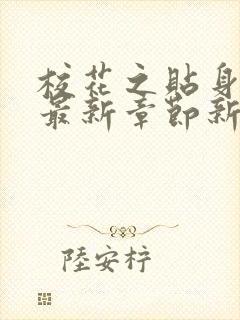 校花之貼身
最新章節新
陸安梓